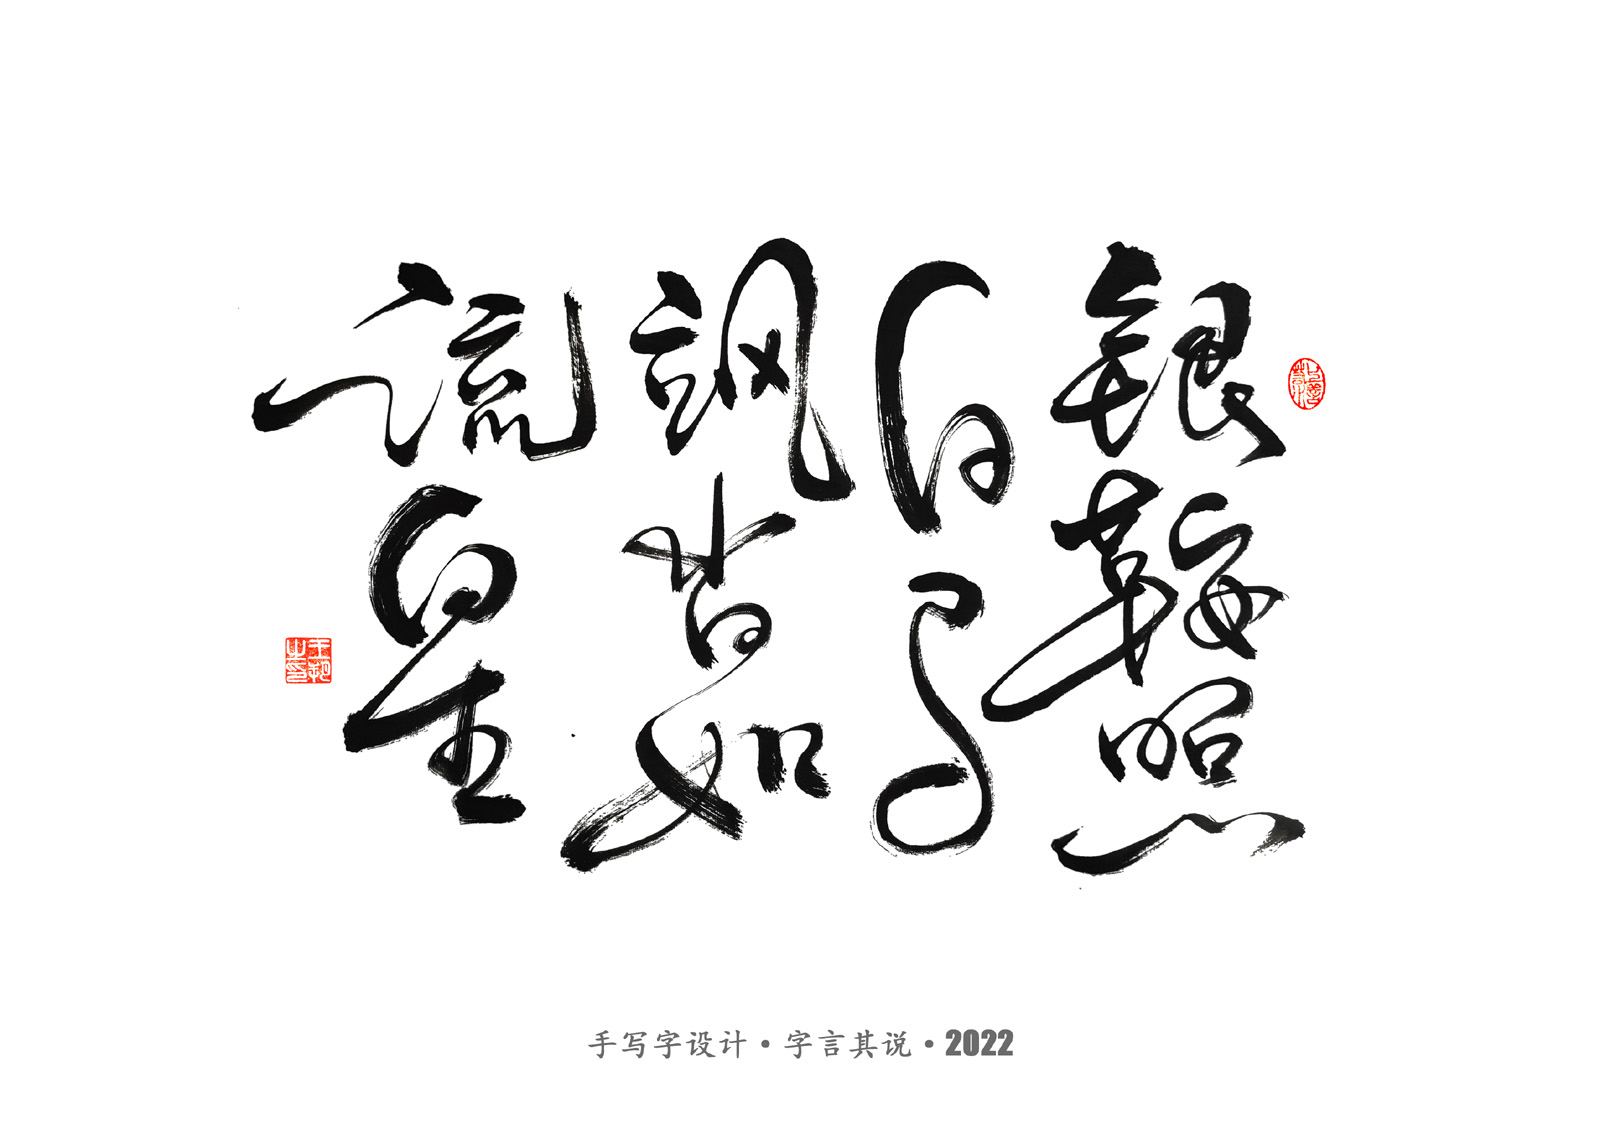 银鞍照
白马
飒沓如
流星
手写字设计·字言其说·2022